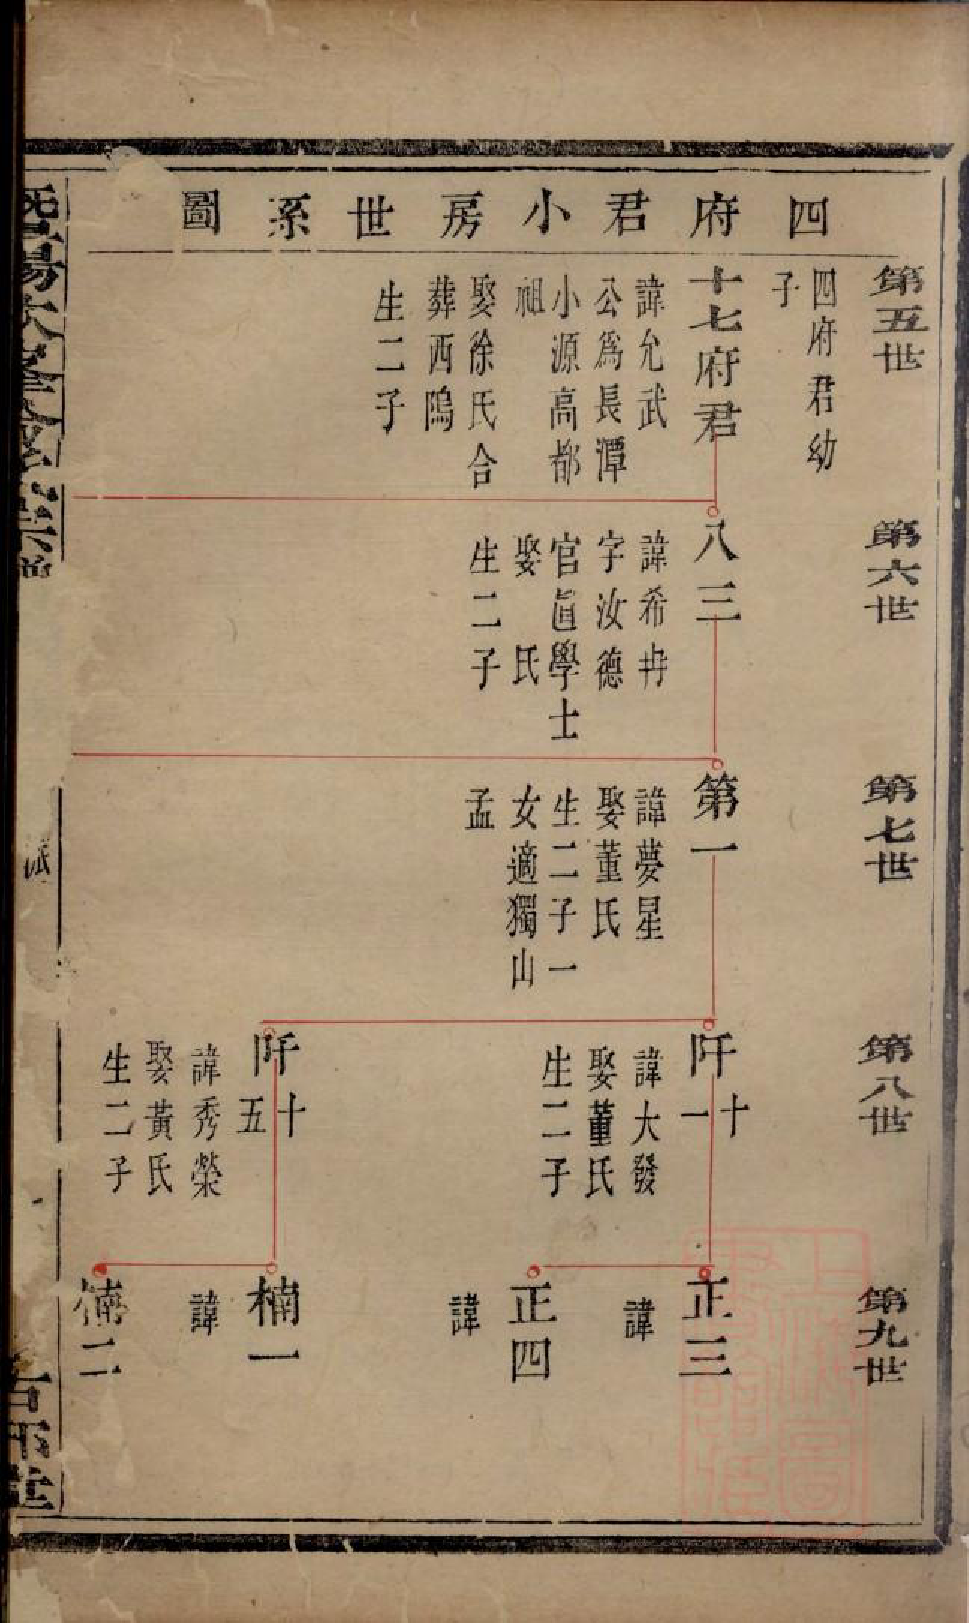 四府君小房世系圖
第五世
四府君幼
子
十七府君
諱允武
公爲長潭
小源高都
祖
娶徐氏合
葬西隖
生二子
第六世
八三
諱希冉
字汝德
官直學士
娶 氏
生二子
第七世
第一
諱夢星
娶董氏
生二子一
女適獨山
孟
第八世
阡十一
諱大發
娶董氏
生二子
阡十五
諱秀榮
娶黃氏
生二子
第九世
正三
諱
正四
諱
楠一
諱
楠二
派